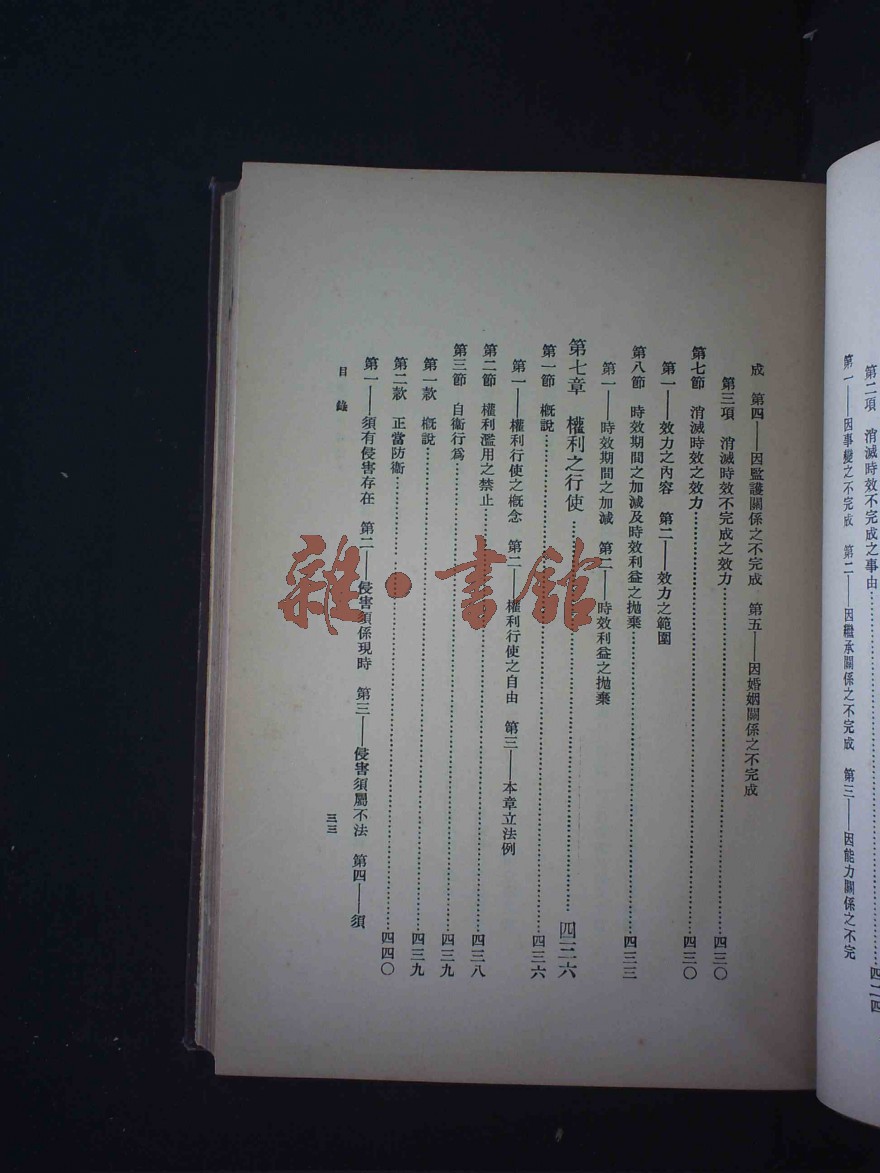 第二項　消滅時效不完成之事由……四二四
第一——因事變之不完成　第二——因繼承關係之不完成　第三——因能力關係之不完
成　第四——因監護關係之不完成　第五——因婚姻關係之不完成
第三項　消滅時效不完成之效力……四三〇
第七節　消滅時效之效力……四三〇
第一——效力之內容　第二——效力之範圍
第八節　時效期間之加減及時效利益之拋棄……四三三
第一——時效期間之加減　第二——時效利益之拋棄
第七章　權利之行使……四三六
第一節　概說……四三六
第一——權利行使之概念　第二——權利行使之自由　第三——本章立法例
第二節　權利濫用之禁止……四三八
第三節　自衞行爲……四三九
第一款　概說……四三九
第二款　正當防衞……四四〇
第一——須有侵害存在　第二——侵害須係現時　第三——侵害須屬不法　第四——須
目錄
三三
雜·書館